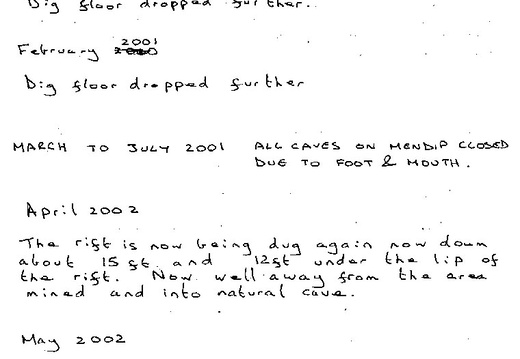 Dig floor dropped further.
February 2001
Dig floor dropped further
MARCH TO JULY 2001 ALL CAVES ON MENDIP CLOSED
DUE TO FOOT & MOUTH.
April 2002
The rift is now being dug again now down
about 15 ft and 12ft under the lip of
the rift. Now well away from the area
mined and into natural cave.
May 2002